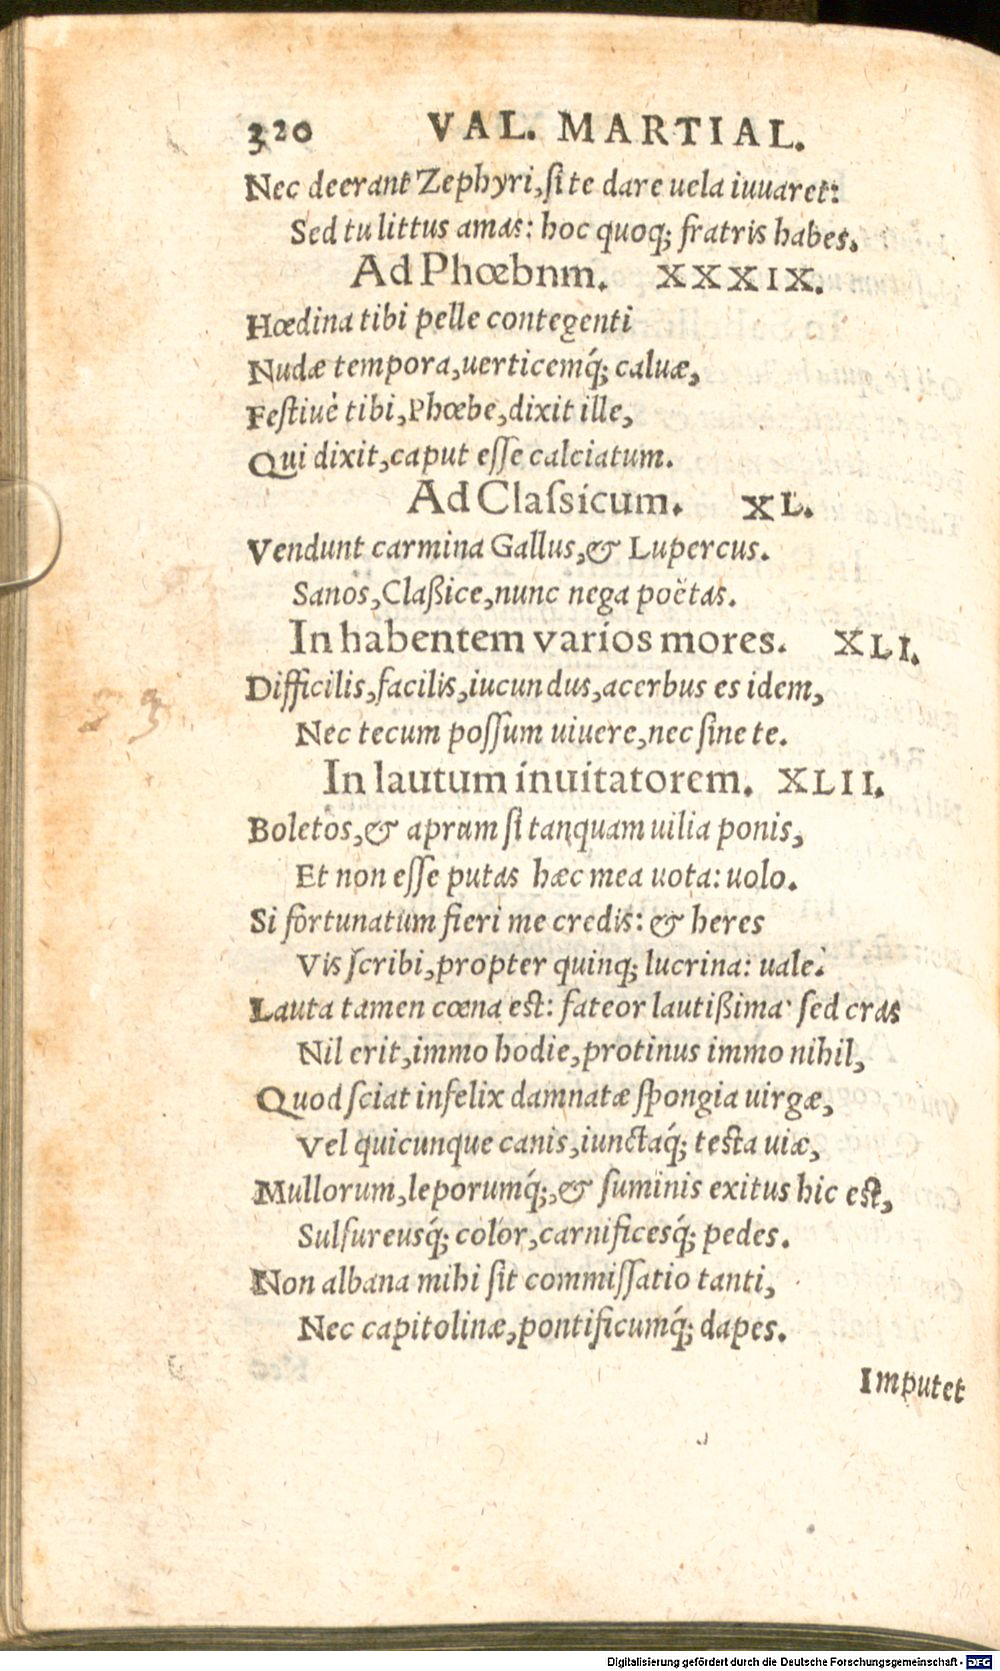 320 VAL. MARTIAL.
Nec deerant Zephyri, si te dare uela iuuaret:
Sed tu littus amas: hoc quoq; fratris habes.
Ad Phœbnm. XXXIX.
Hœdina tibi pelle contegenti
Nudæ tempora, uerticemq́; caluæ,
Festiuè tibi, Phœbe, dixit ille,
Qui dixit, caput esse calciatum.
Ad Classicum. XL.
Vendunt carmina Gallus, & Lupercus.
Sanos, Claßice, nunc nega poëtas.
In habentem varios mores. XLI.
Difficilis, facilis, iucundus, acerbus es idem,
Nec tecum possum uiuere, nec sine te.
In lautum inuitatorem. XLII.
Boletos, & aprum si tanquam uilia ponis,
Et non esse putas hæc mea uota: uolo.
Si fortunatum fieri me credis: & heres
Vis scribi, propter quinq; lucrina: uale.
Lauta tamen cœna est: fateor lautißima: sed cras
Nil erit, immo hodie, protinus immo nihil,
Quod sciat infelix damnatæ spongia uirgæ,
Vel quicunque canis, iunctaq́; testa uiæ,
Mullorum, leporumq́;, & suminis exitus hic est,
Sulfureusq́; color, carnificesq́; pedes.
Non albana mihi sit commissatio tanti,
Nec capitolinæ, pontificumq́; dapes.
Imputet
Digitalisierung gefördert durch die Deutsche Forschungsgemeinschaft - DFG